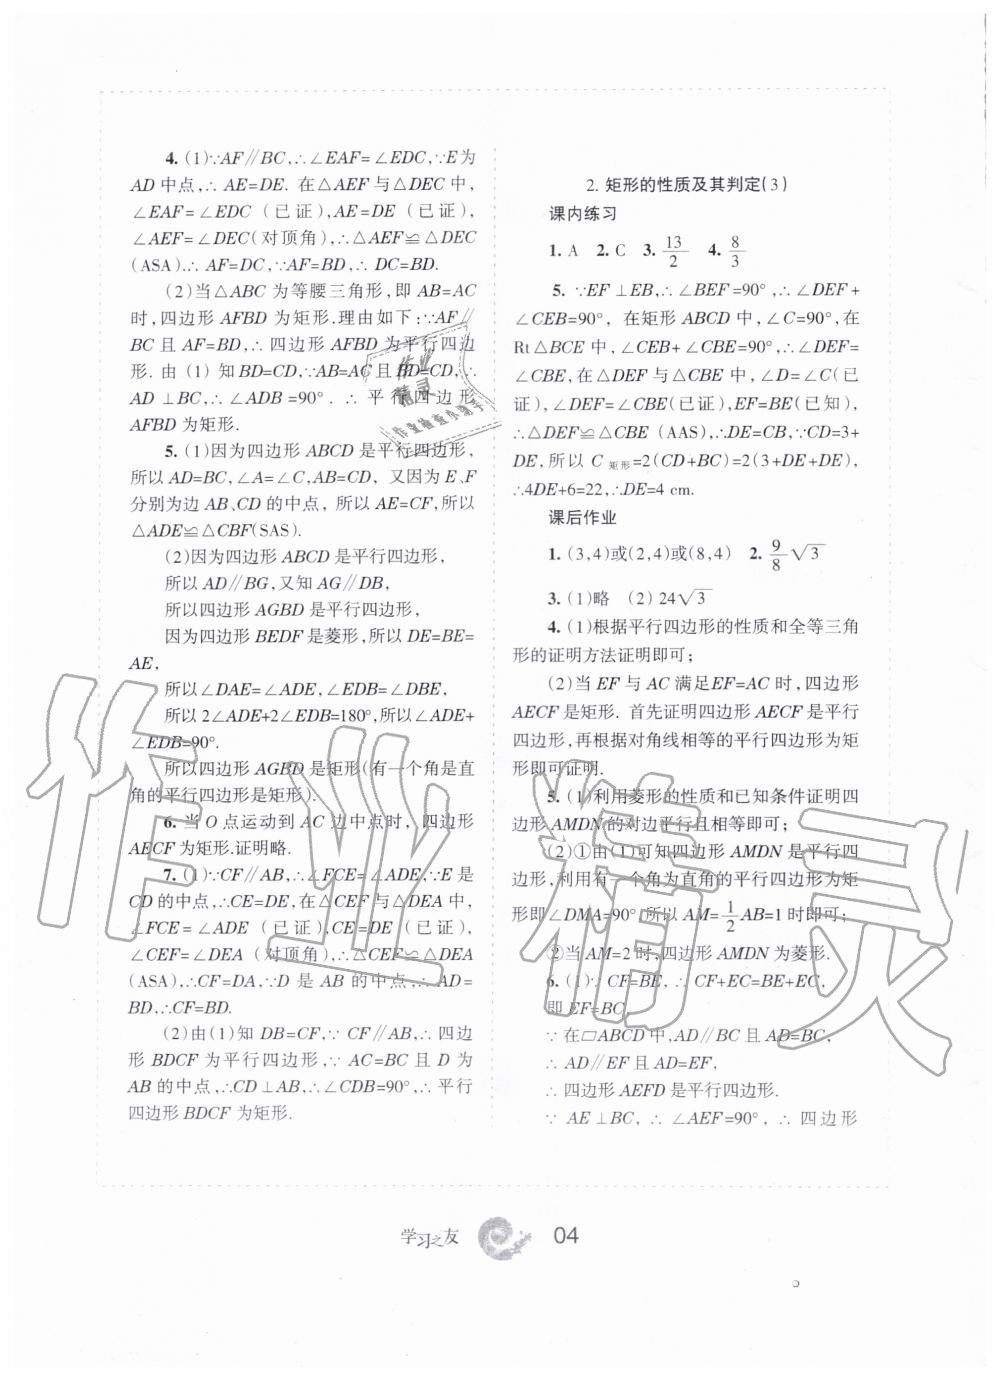 4. (1)∵AF∥BC,∴∠EAF=∠EDC,∵E为
AD中点,∴ AE=DE. 在△AEF与△DEC中,
∠EAF=∠EDC (已证),AE=DE (已证),
∠AEF=∠DEC(对顶角),∴△AEF≌△DEC
(ASA).∴ AF=DC,∵AF=BD,∴ DC=BD.
(2)当△ABC 为等腰三角形,即 AB=AC
时,四边形 AFBD 为矩形.理由如下:∵AF∥
BC 且 AF=BD,∴四边形 AFBD 为平行四边
形. 由 (1) 知BD=CD,∵AB=AC且BD=CD,∴
AD ⊥BC,∴∠ADB =90°. ∴ 平行四边形
AFBD 为矩形.
5. (1)因为四边形 ABCD 是平行四边形,
所以 AD=BC,∠A=∠C,AB=CD, 又因为 E、F
分别为边 AB、CD 的中点, 所以 AE=CF,所以
△ADE≌△CBF(SAS).
(2)因为四边形 ABCD 是平行四边形,
所以 AD∥BG,又知 AG∥DB,
所以四边形 AGBD 是平行四边形,
因为四边形 BEDF 是菱形,所以 DE=BE=
AE,
所以∠DAE=∠ADE,∠EDB=∠DBE,
所以 2∠ADE+2∠EDB=180°,所以∠ADE+
∠EDB=90°.
所以四边形 AGBD 是矩形(有一个角是直
角的平行四边形是矩形).
6. 当 O 点运动到 AC 边中点时, 四边形
AECF 为矩形.证明略.
7. (1)∵CF∥AB,∴∠FCE=∠ADE,∵E 是
CD的中点,∴CE=DE,在△CEF与△DEA 中,
∠FCE =∠ADE (已证),CE=DE (已证),
∠CEF=∠DEA (对顶角),∴△CEF≌△DEA
(ASA),∴CF=DA,∵D 是 AB 的中点,∴AD=
BD,∴CF=BD.
(2)由(1)知 DB=CF,∵ CF∥AB,∴四边
形 BDCF 为平行四边形,∵ AC=BC 且 D 为
AB 的中点,∴CD⊥AB,∴∠CDB=90°,∴平行
四边形 BDCF 为矩形.
2. 矩形的性质及其判定(3)
课内练习
1. A 2. C 3. 13/2 4. 8/3
5. ∵EF⊥EB,∴∠BEF=90°,∴∠DEF+
∠CEB=90°, 在矩形 ABCD 中,∠C=90°,在
Rt△BCE 中,∠CEB+∠CBE=90°,∴∠DEF=
∠CBE,在△DEF与△CBE中,∠D=∠C(已
证),∠DEF=∠CBE(已证),EF=BE(已知),
∴△DEF≌△CBE (AAS),∴DE=CB,∵CD=3+
DE,所以 C矩形=2(CD+BC)=2(3+DE+DE),
∴4DE+6=22,∴DE=4 cm.
课后作业
1. (3,4)或(2,4)或(8,4) 2. 9/8√3
3. (1)略 (2) 24√3
4. (1)根据平行四边形的性质和全等三角
形的证明方法证明即可;
(2)当 EF 与 AC 满足EF=AC 时,四边形
AECF 是矩形. 首先证明四边形 AECF 是平行
四边形,再根据对角线相等的平行四边形为矩
形即可证明.
5. (1)利用菱形的性质和已知条件证明四
边形 AMDN 的对边平行且相等即可;
(2)①由(1)可知四边形 AMDN 是平行四
边形,利用有一个角为直角的平行四边形为矩
形即∠DMA=90°,所以 AM=1/2AB=1 时即可;
②当 AM=2 时,四边形 AMDN 为菱形.
6. (1)∵ CF=BE,∴ CF+EC=BE+EC,
即 EF=BC,
∵在▱ABCD中,AD∥BC 且 AD=BC,
∴ AD∥EF 且 AD=EF,
∴四边形 AEFD 是平行四边形.
∵ AE⊥BC,∴∠AEF=90°,∴四边形
学习之友
04
作业精灵
作业
精灵
作业检查小助手